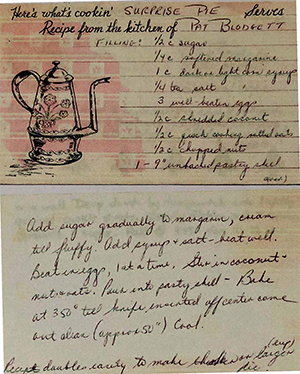 Here's what's cookin' SURPRISE PIE Serves
Recipe from the kitchen of PAT BLODGETT
FILLING: 1/2 c sugar
1/4 c softened margarine
1 c dark or light corn syrup
1/4 tea salt
3 well beaten eggs
1/2 c shredded coconut
1/2 c quick cooking rolled oats
1/2 c chopped nuts
1 - 9" unbaked pastry shell
(over)
Add sugar gradually to margarine, cream
till fluffy. Add syrup & salt - beat well.
Beat in eggs, 1 at a time, Stir in coconut -
nuts & oats. Pour into pastry shell - Bake
at 350° till knife inserted off center come
out clean (approx 50") Cool.
Recipe doubles easily to make on larger
pie.